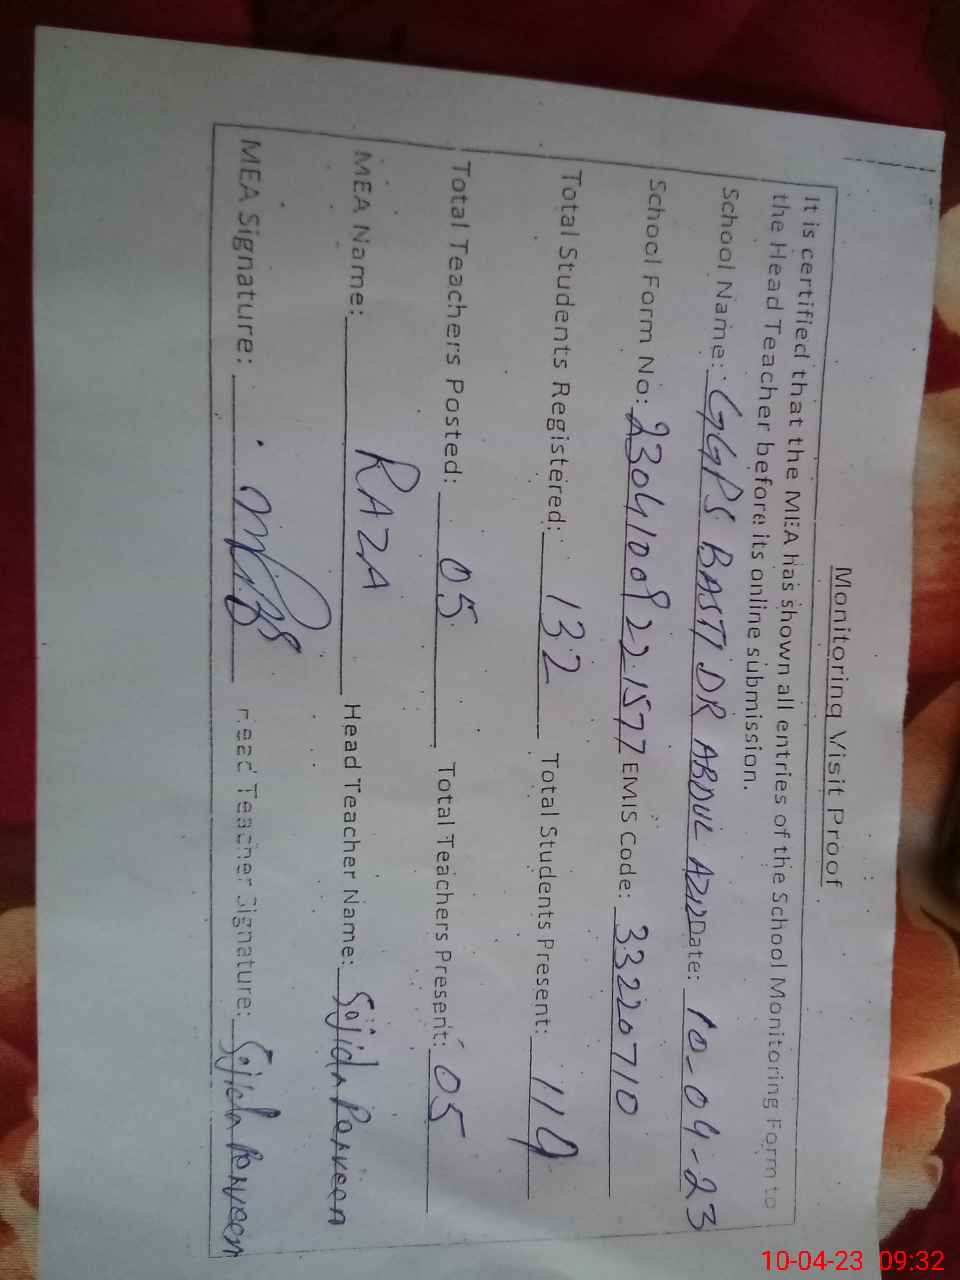 Monitoring Visit Proof
It is certified that the MEA has shown all entries of the School Monitoring Form to
the Head Teacher before its online submission.
School Name: GGPS BASTI DR ABDUL AZIZ Date: 10-04-23
School Form No: 23041009221577 EMIS Code: 33220710
Total Students Registered: 132 Total Students Present: 114
Total Teachers Posted: 05 Total Teachers Present: 05
MEA Name: RAZA Head Teacher Name: Sajida Parveen
MEA Signature: Head Teacher Signature: Sajida Parveen
10-04-23 09:32